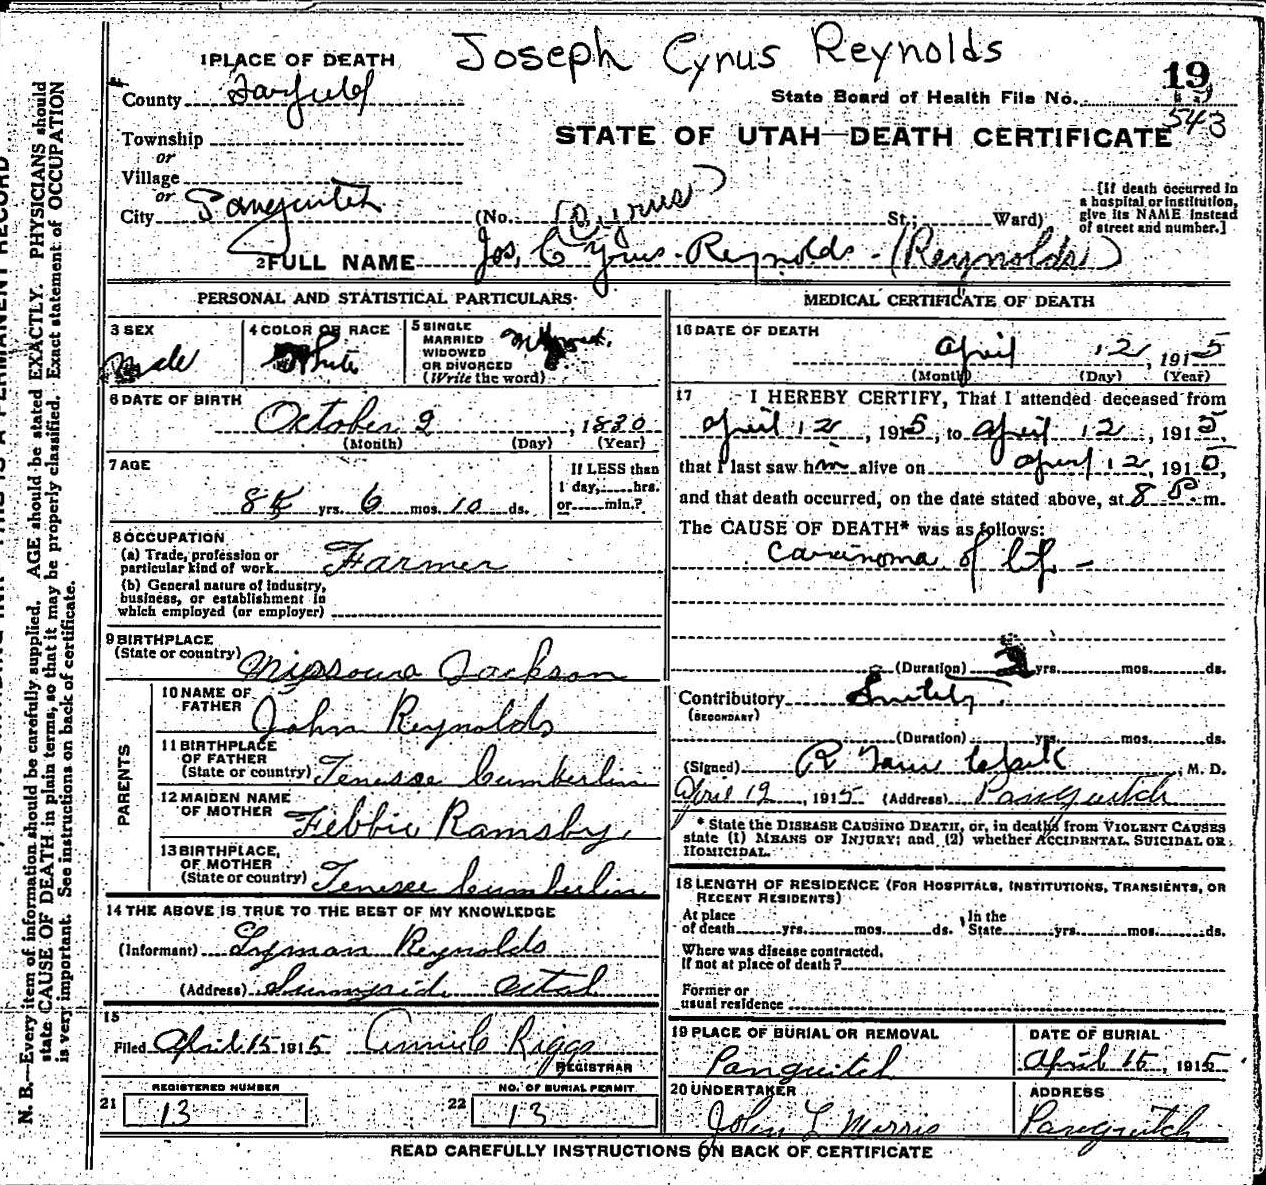 Joseph Cyrus Reynolds
1 PLACE OF DEATH
19
County Garfield
State Board of Health File No. 543
Township
STATE OF UTAH—DEATH CERTIFICATE
or
Village
or
City Panguitch (No. (Cyrus) St.; Ward)
[If death occurred in
a hospital or institution,
give its NAME instead
of street and number.]
2 FULL NAME Jos. Cyrus Reynolds (Reynolds)
PERSONAL AND STATISTICAL PARTICULARS
3 SEX
Male
4 COLOR OR RACE
White
5 SINGLE
MARRIED
WIDOWED
OR DIVORCED
(Write the word)
6 DATE OF BIRTH
October 2, 1830
(Month) (Day) (Year)
7 AGE
yrs. 6 mos. 10 ds.
If LESS than
1 day, hrs.
or min.?
8 OCCUPATION
(a) Trade, profession or
particular kind of work Farmer
(b) General nature of industry,
business, or establishment in
which employed (or employer)
9 BIRTHPLACE
(State or country) Missoura Jackson
PARENTS
10 NAME OF
FATHER
John Reynolds
11 BIRTHPLACE
OF FATHER
(State or country) Tenesse Cumberlin
12 MAIDEN NAME
OF MOTHER
Febbie Ramsby
13 BIRTHPLACE,
OF MOTHER
(State or country) Tenesee Cumberlin
14 THE ABOVE IS TRUE TO THE BEST OF MY KNOWLEDGE
(Informant) Lyman Reynolds
(Address) Sunnyside Utah
15
Filed April 15 1915 Riggs
REGISTRAR
REGISTERED NUMBER
21 13
NO. OF BURIAL PERMIT
22 13
MEDICAL CERTIFICATE OF DEATH
16 DATE OF DEATH
April 12, 1915
(Month) (Day) (Year)
17 I HEREBY CERTIFY, That I attended deceased from
April 12, 1915, to April 12, 1915,
that I last saw him alive on April 12, 1915,
and that death occurred, on the date stated above, at 8 P. m.
The CAUSE OF DEATH* was as follows:
Carcinoma of lip
(Duration) yrs. mos. ds.
Contributory Senility
(SECONDARY)
(Duration) yrs. mos. ds.
(Signed) R , M. D.
April 12, 1915 (Address) Panguitch
* State the DISEASE CAUSING DEATH, or, in deaths from VIOLENT CAUSES
state (1) MEANS OF INJURY; and (2) whether ACCIDENTAL, SUICIDAL OR
HOMICIDAL.
18 LENGTH OF RESIDENCE (FOR HOSPITALS, INSTITUTIONS, TRANSIENTS, OR
RECENT RESIDENTS)
At place
of death yrs. mos. ds.
In the
State yrs. mos. ds.
Where was disease contracted,
If not at place of death?
Former or
usual residence
19 PLACE OF BURIAL OR REMOVAL
Panguitch
DATE OF BURIAL
April 15, 1915
20 UNDERTAKER
John L Morris
ADDRESS
Panguitch
READ CAREFULLY INSTRUCTIONS ON BACK OF CERTIFICATE
N. B.—Every item of information should be carefully supplied. AGE should be stated EXACTLY. PHYSICIANS should
state CAUSE OF DEATH in plain terms, so that it may be properly classified. Exact statement of OCCUPATION
is very important. See instructions on back of certificate.